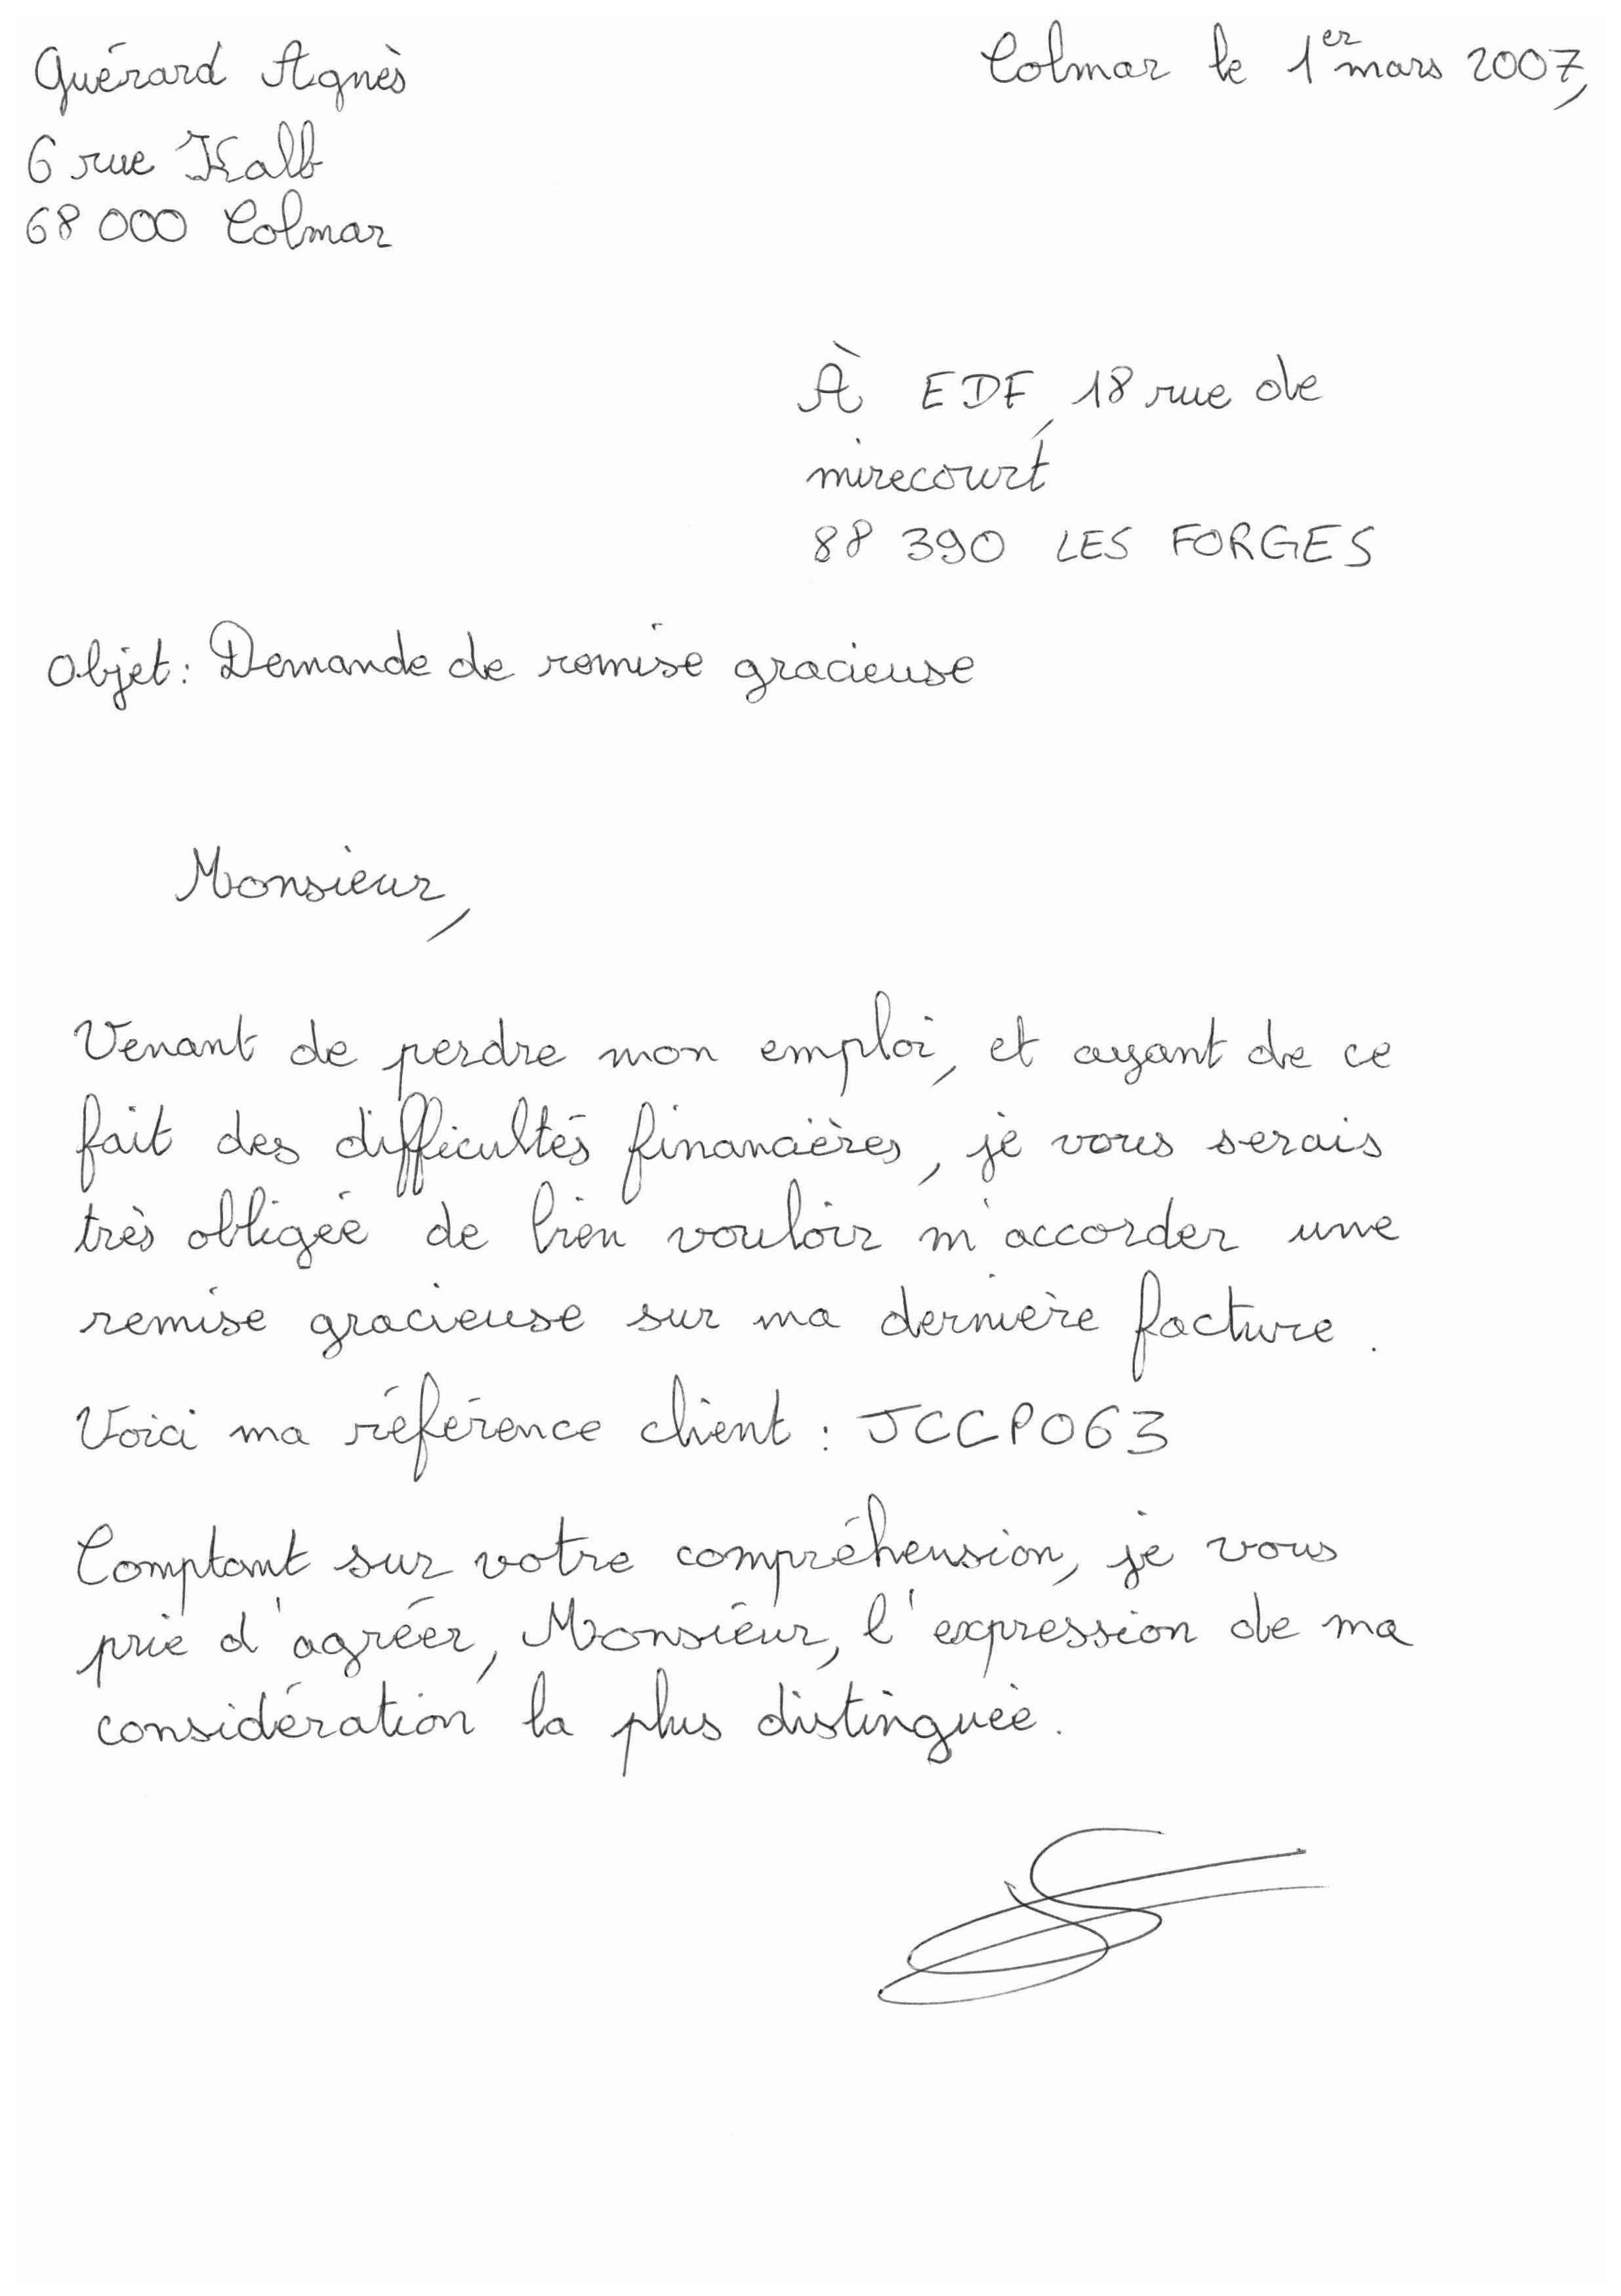 Guérard Agnès
Colmar le 1er mars 2007,
6 rue Kalb
68 000 Colmar
À EDF, 18 rue de
mirecourt
88 390 LES FORGES
Objet : Demande de remise gracieuse
Monsieur,
Venant de perdre mon emploi, et ayant de ce
fait des difficultés financières, je vous serais
très obligée de bien vouloir m'accorder une
remise gracieuse sur ma dernière facture.
Voici ma référence client : JCCP063
Comptant sur votre compréhension, je vous
prie d'agréer, Monsieur, l'expression de ma
considération la plus distinguée.